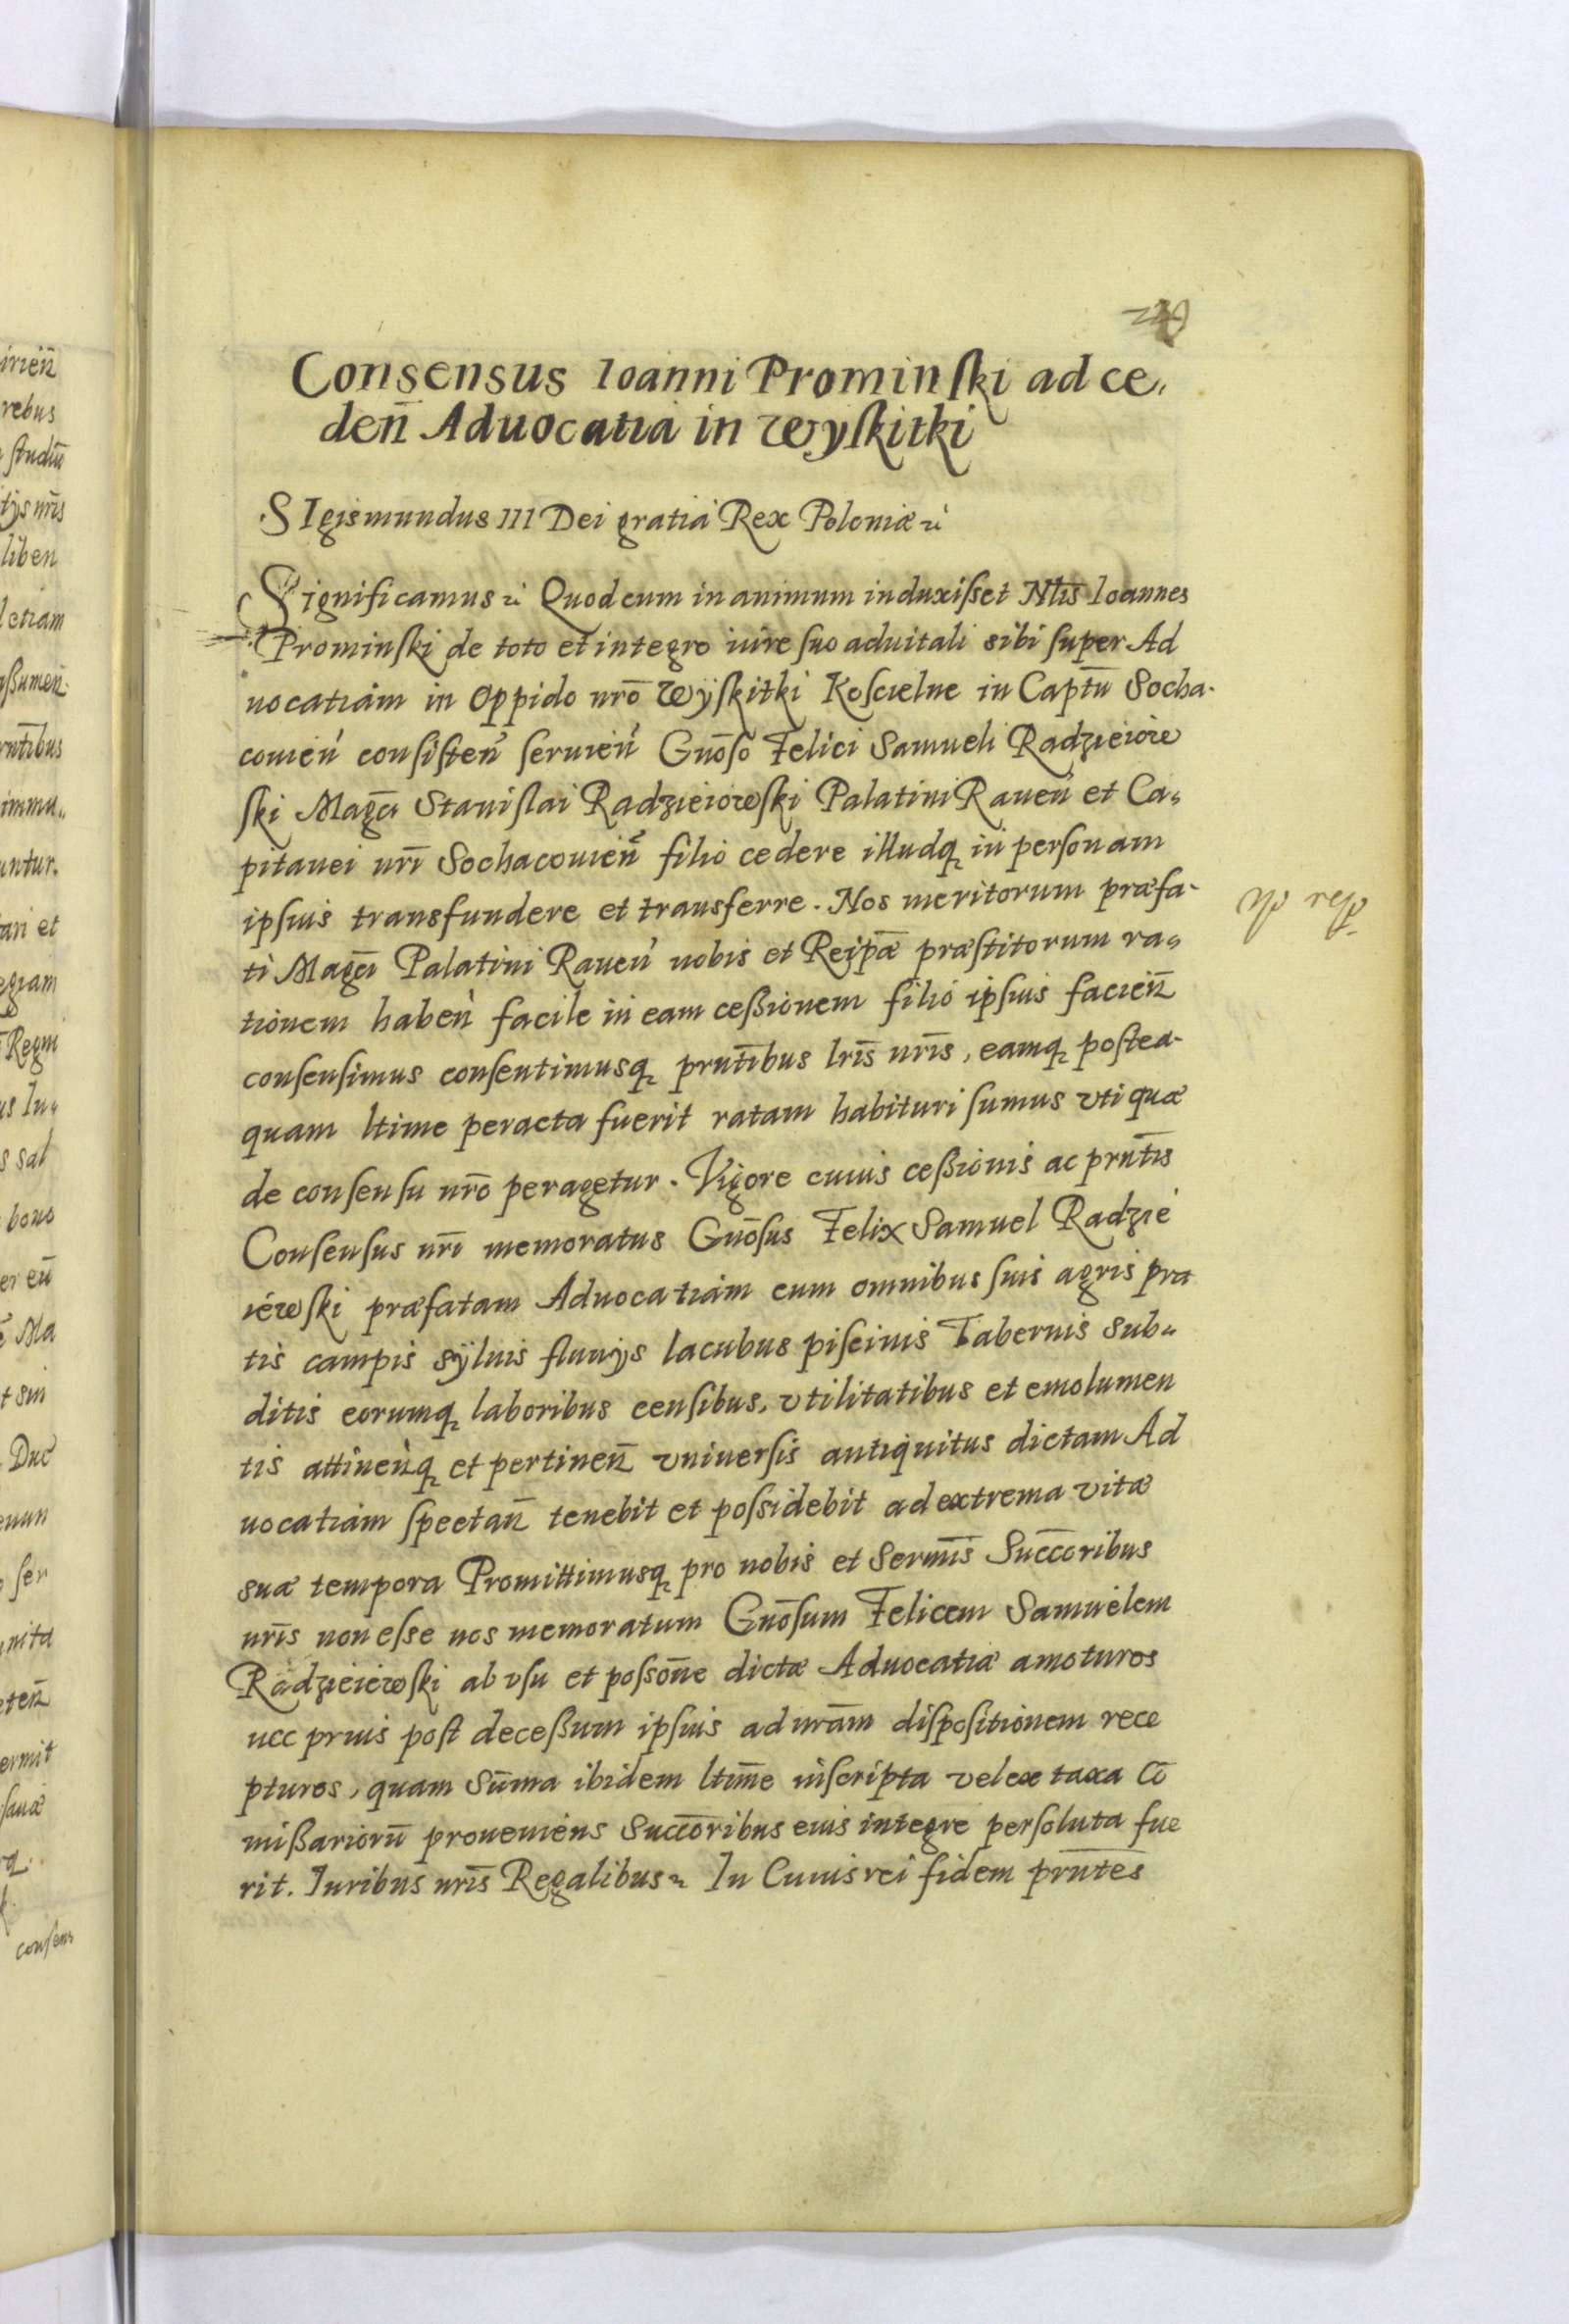 Consensus Ioanni Prominski ad ce,
den̄ Aduocatia in Wyskitki
SIgismundus III Dei gratia Rex Poloniæ ꝛc̓
Significamus ꝛc̓ Quod cum in animum induxisset Nlis̄ Ioannes
Prominski de toto et integro iure suo aduitali sibi super Ad
uocatiam in Oppido nrō Wÿskitki Koscielne in Captū Socha-
couien̓ consisten̓ seruien̓ Gnōso Felici Samueli Radzieiow
ski Magci̅ Stanislai Radzieiowski Palatini Rauen̓ et Ca,
pitanei nrī Sochacouien̓ filio cedere illudq, in personam
ipsius transfundere et transferre. Nos meritorum præfa-
ti Magci̅ Palatini Rauen̓ nobis et Reipæ̅ præstitorum ra,
tionem haben̓ facile in eam ceßionem filio ipsius facien̄
consensimus consentimusq, prntībus lrīs nrīs, eamq, postea-
quam ltime peracta fuerit ratam habituri sumus vti quæ
de consensu nrō peragetur. Vigore cuius ceßionis ac prntīs
Consensus nrī memoratus Gnōsus Felix Samuel Radzie
iewski præfatam Aduocatiam cum omnibus suis agris pra
tis campis sÿluis fluuijs lacubus piscinis Tabernis sub,,
ditis eorumq, laboribus censibus, vtilitatibus et emolumen
tis attinen̓q, et pertinen̄ vniuersis antiquitus dictam Ad
uocatiam spectan̄ tenebit et possidebit ad extrema vitæ
suæ tempora Promittimusq, pro nobis et Sermīs Succ̄oribus
nrīs non esse nos memoratum Gnōsum Felicem Samuelem
Radzieiewski ab vsu et possōne dictæ Aduocatiæ amoturos
nec prius post deceßum ipsius ad nrām dispositionem rece
pturos, quam Sūma ibidem ltīme inscripta vel ex taxa Cō
mißariorū proueniens Succ̄oribus eius integre persoluta fue
rit. Iuribus nrīs Regalibus ꝛc In Cuius rei fidem prntēs